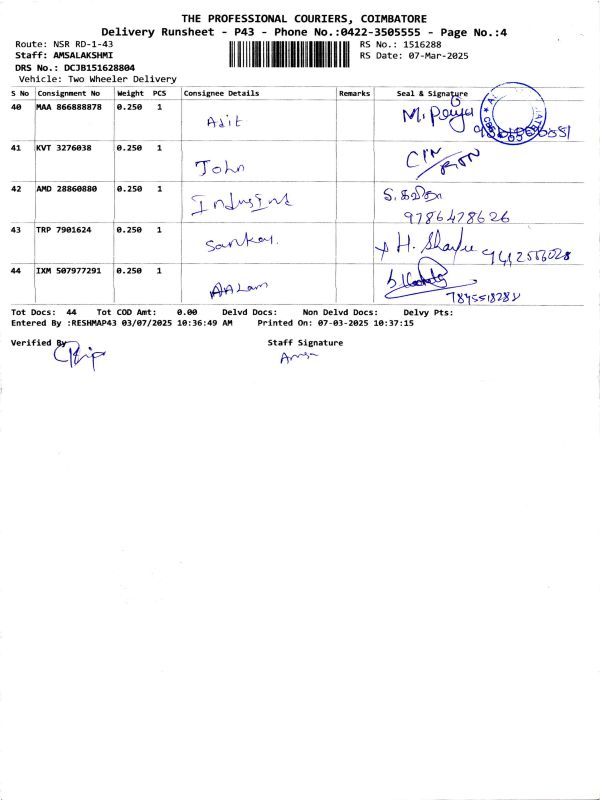 THE PROFESSIONAL COURIERS, COIMBATORE
Delivery Runsheet - P43 - Phone No.:0422-3505555 - Page No.:4
Route: NSR RD-1-43 RS No.: 1516288
Staff: AMSALAKSHMI RS Date: 07-Mar-2025
DRS No.: DCJB151628804
Vehicle: Two Wheeler Delivery
S No Consignment No Weight PCS Consignee Details Remarks Seal & Signature
40 MAA 866888878 0.250 1 Adit M. Priya
41 KVT 3276038 0.250 1 John
42 AMD 28860880 0.250 1 Indusind S. கவிதா
9786478626
43 TRP 7901624 0.250 1 Sankar.
44 IXM 507977291 0.250 1 AALam
Tot Docs: 44 Tot COD Amt: 0.00 Delvd Docs: Non Delvd Docs: Delvy Pts:
Entered By :RESHMAP43 03/07/2025 10:36:49 AM Printed On: 07-03-2025 10:37:15
Verified By Staff Signature
Amsa